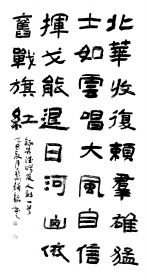 北華收復賴羣雄猛
士如雲唱大風自信
揮戈能退日河山依
舊戰旗紅